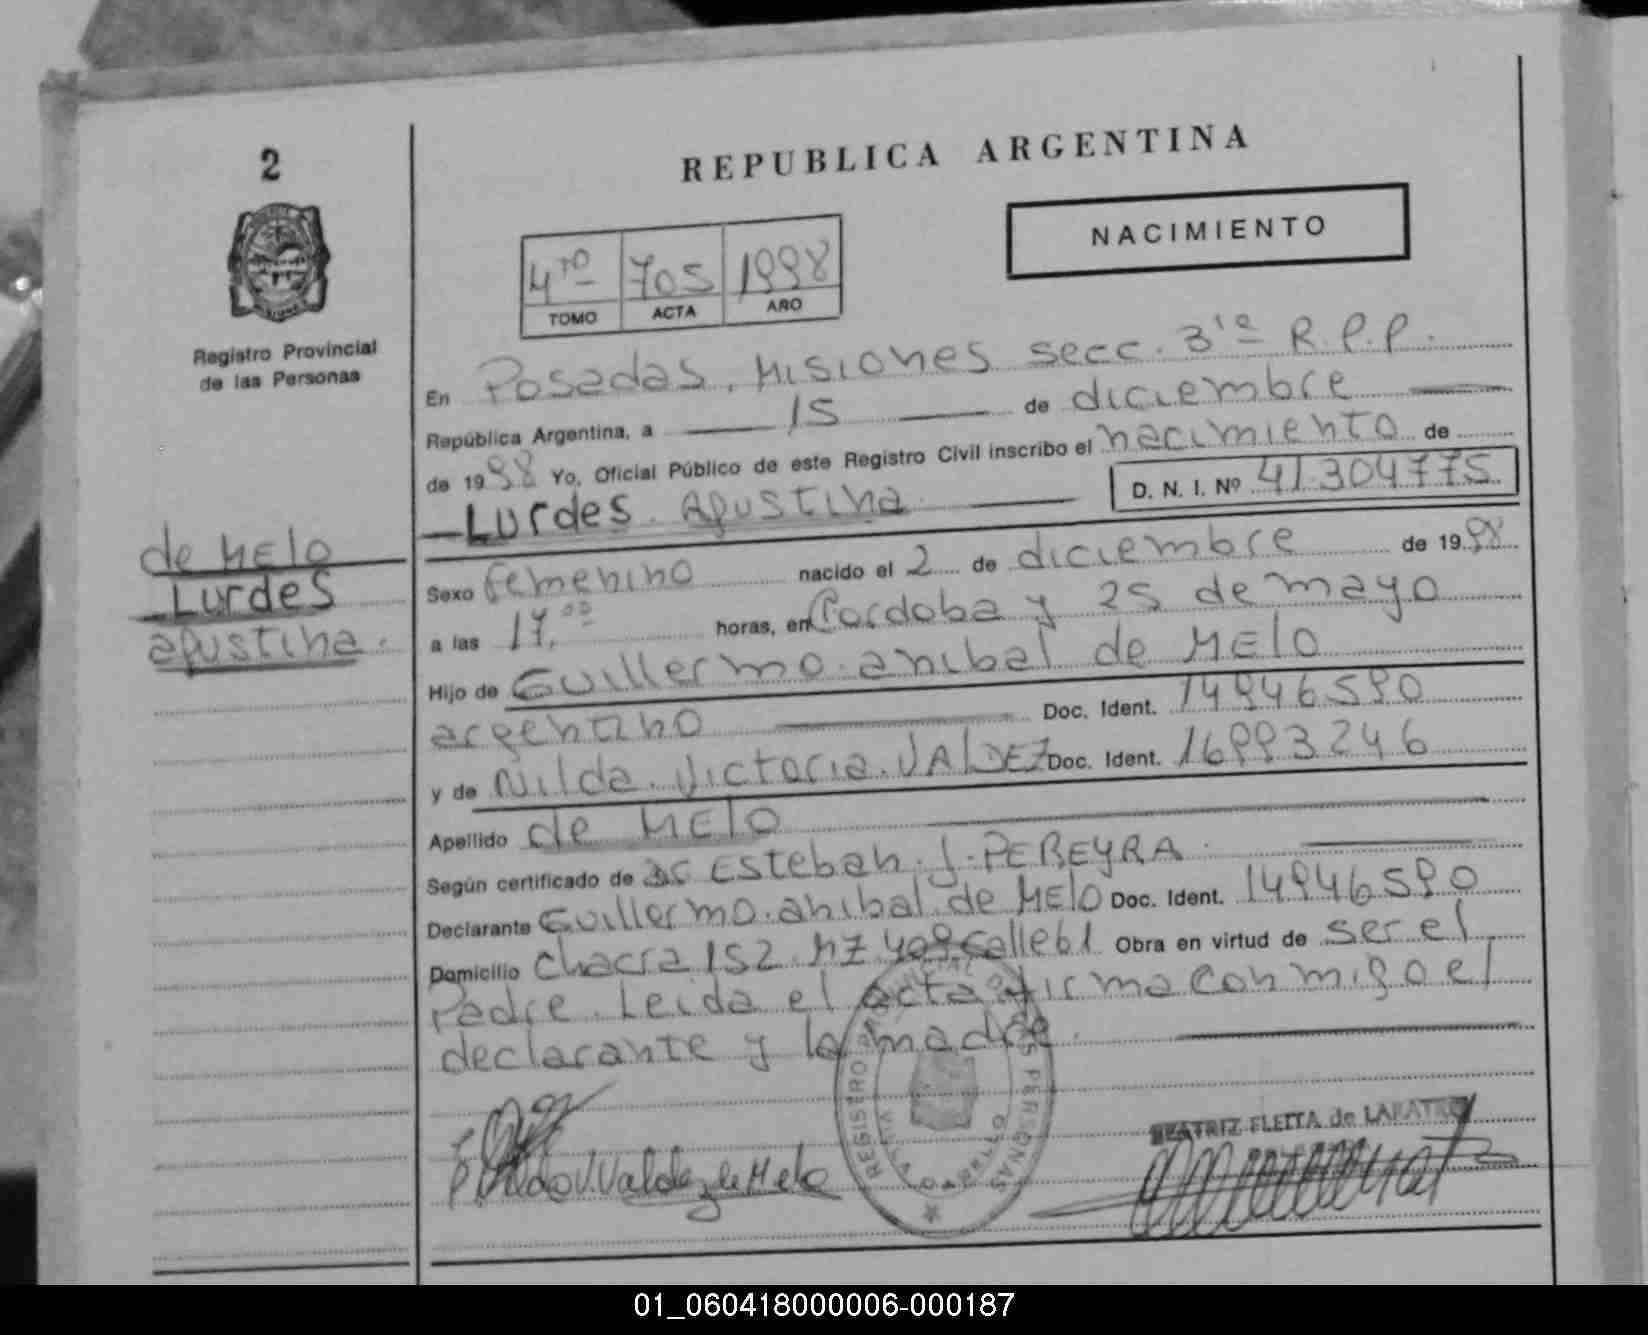 2
Registro Provincial
de las Personas
de MELO
Lurdes
agustina.
REPUBLICA ARGENTINA
NACIMIENTO
4to 705 1998
TOMO ACTA AÑO
En Posadas, Misiones secc. 3ra R.P.P.
República Argentina, a 15 de diciembre
de 1998 Yo, Oficial Público de este Registro Civil inscribo el nacimiento de
Lurdes Agustina D. N. I. Nº 41.304775
Sexo femenino nacido el 2 de diciembre de 1998
a las 17.00 horas, en Cordoba y 25 de mayo
Hijo de Guillermo anibal de MELO
argentino Doc. Ident. 14946590
y de Nilda Victoria VALDEZ Doc. Ident. 16993246
Apellido de MELO
Según certificado de Dr Esteban J. PEREYRA.
Declarante Guillermo anibal de MELO Doc. Ident. 14946590
Domicilio chacra 152 MZ calle 61 Obra en virtud de ser el
Padre. Leida el acta firma con migo el
declarante y la madre.
REGISTRO PROVINCIAL DE LAS PERSONAS
Valdez de Melo
BEATRIZ FLEITA de
01_060418000006-000187